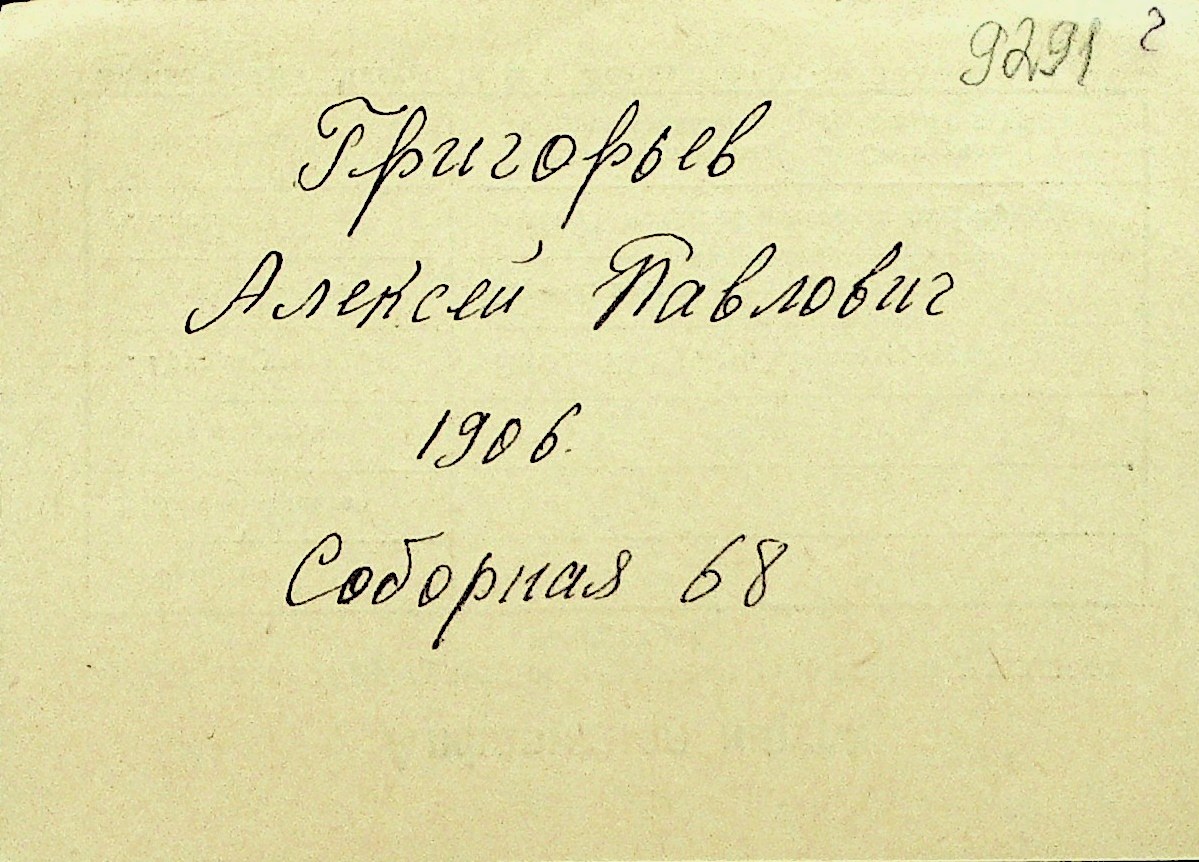 9291 г
Григорьев
Алексей Павлович
1906.
Соборная 68